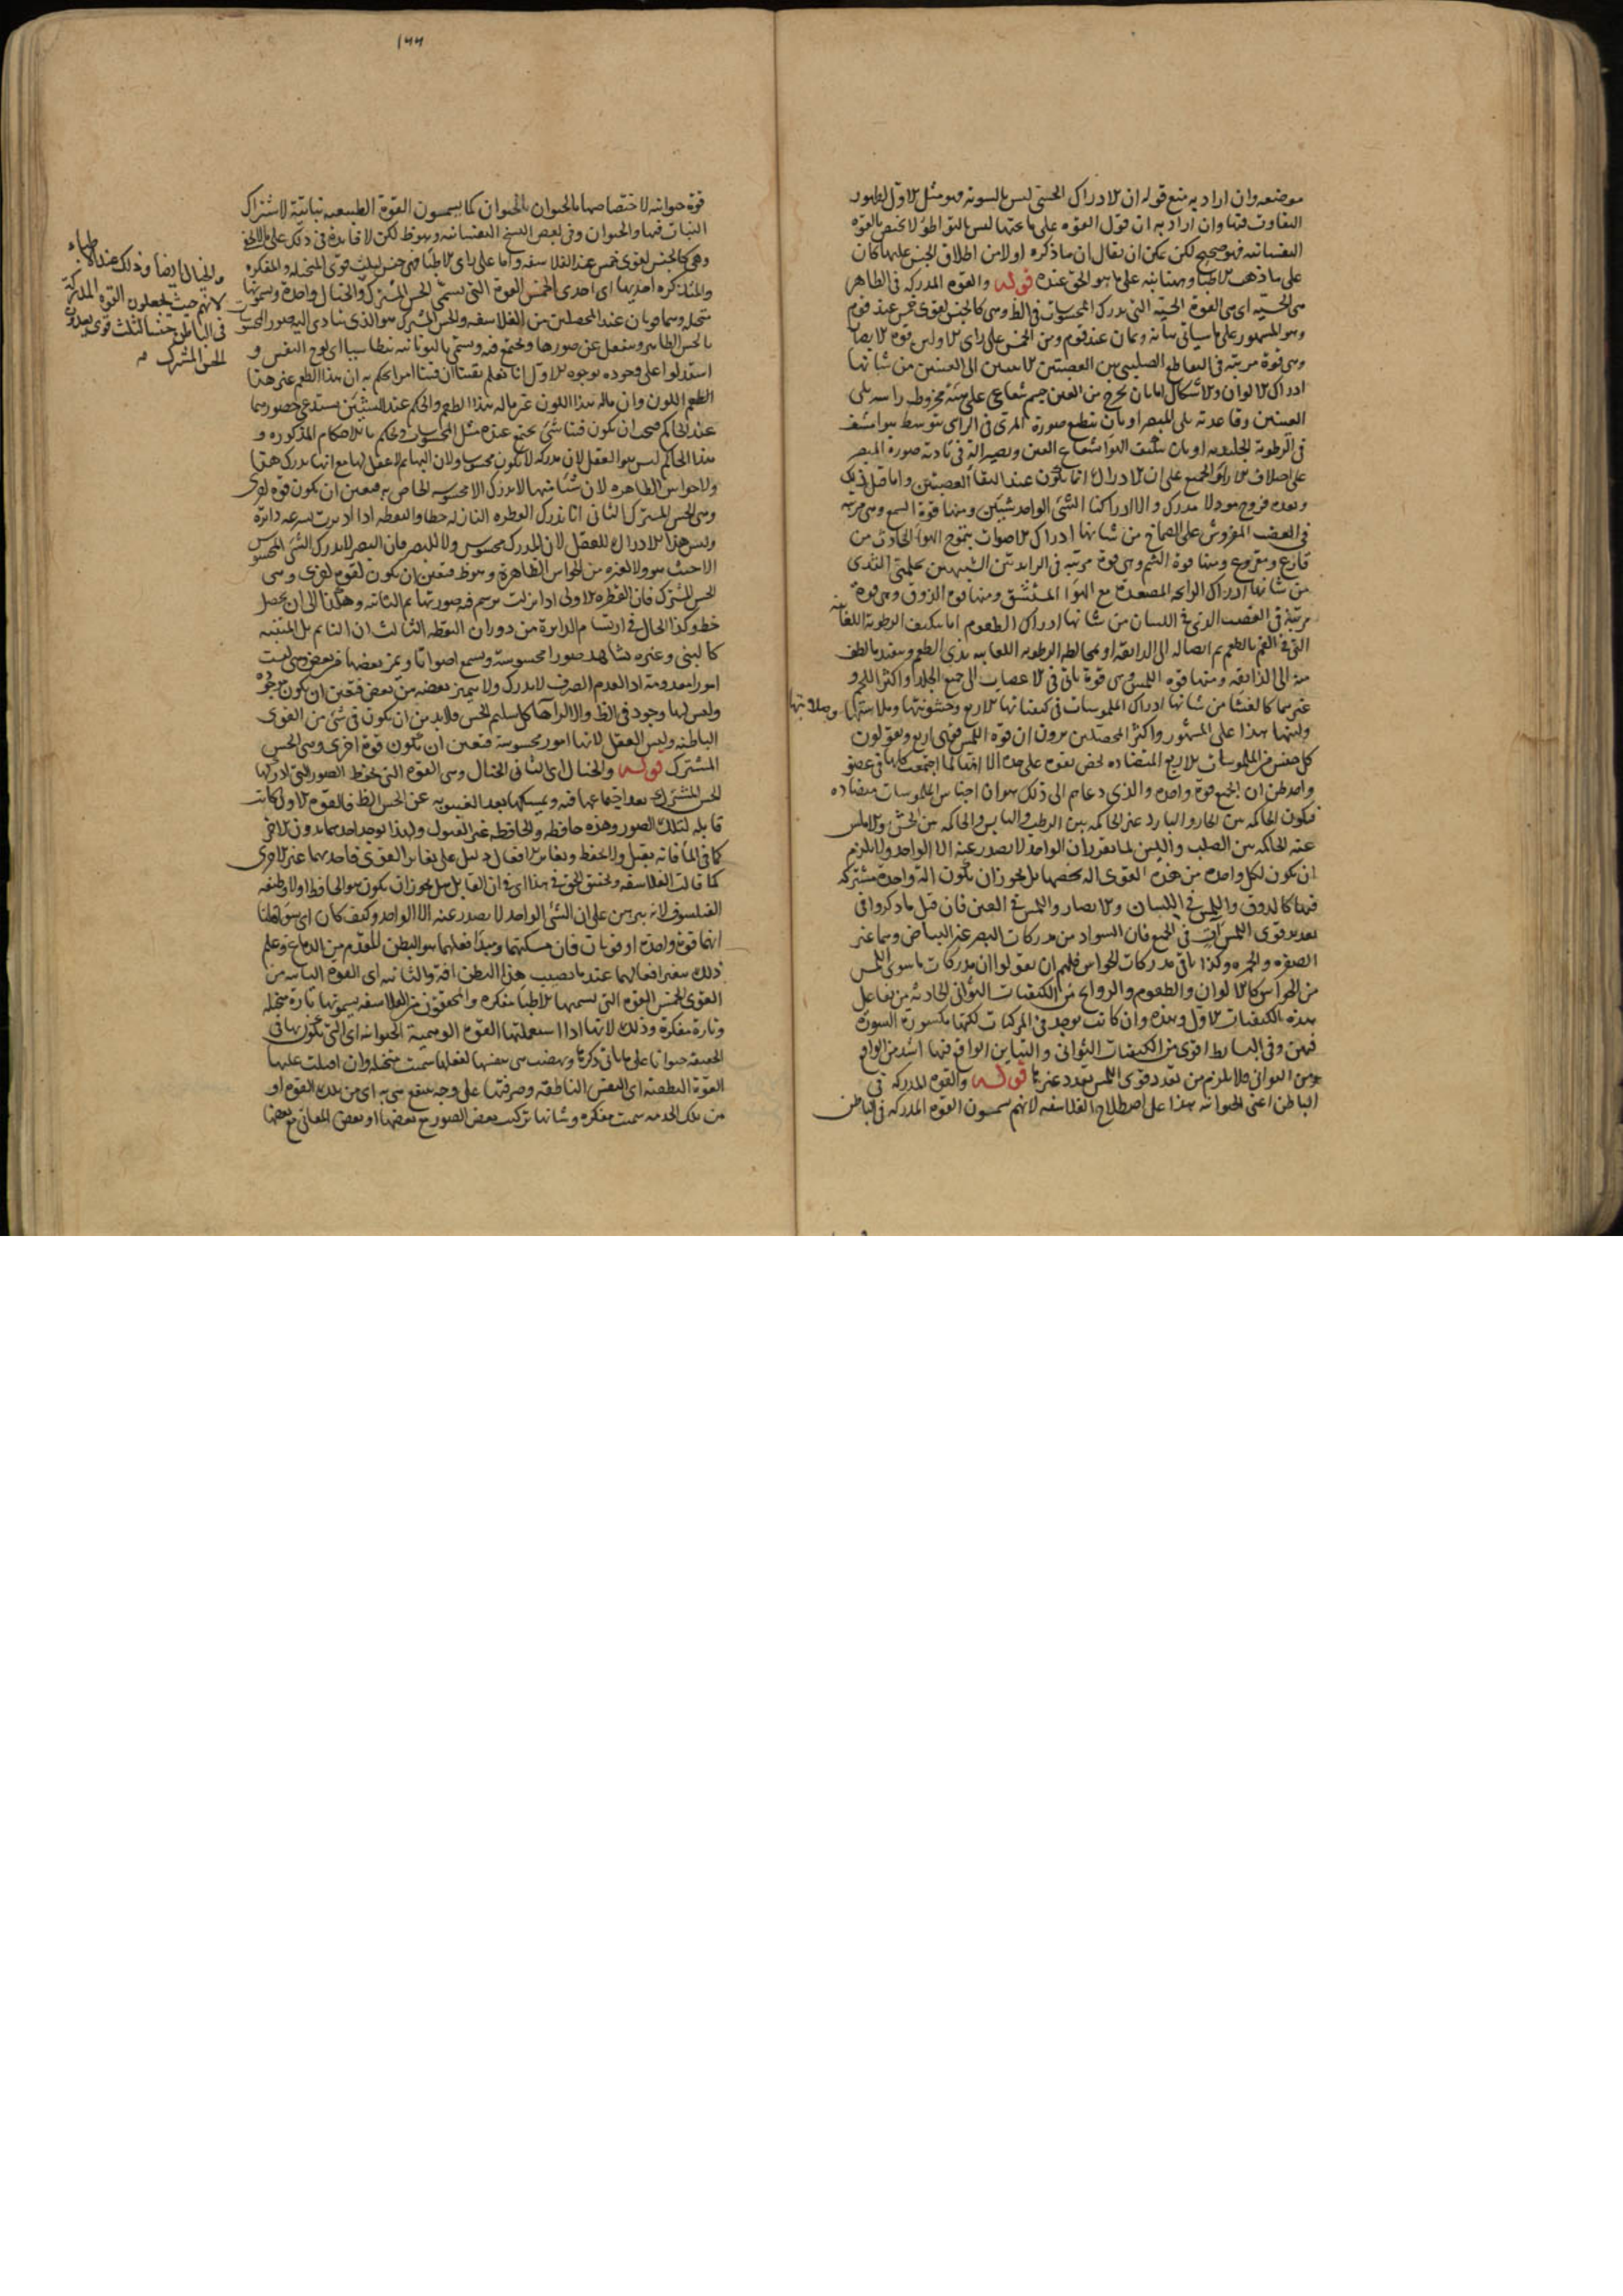 موضعه وان اراد به منع قوله ان الادراك الحسي ليس بالسوية فهو مثل الاول لظهور
التفاوت فيها وان اراد به ان قول القوة على ما تحتها ليس بالتواطؤ لا يختص بالقوة
النفسانية فهو صحيح لكن يمكن ان يقال ان ما ذكره اولا من اطلاق الجنس عليها كان
على مذهب الاطباء وهنا بنبه على ما هو الحق عنده قوله والقوة المدركة في الظاهر
هي الحسية اى هي القوة الحسية التي تدرك المحسوسات في الظ وهي كالجنس لقوى خمس عند قوم
وهو المشهور على ما سياتي بيانه وثمان عند قوم ومن الخمس على راى الاوليس قوة الابصار
وهي قوة مرتبة في التقاطع الصليبي بين العصبتين الاتيتين الى العينين من شانها
ادراك الالوان والاشكال اما بان يخرج من العين جسم شعاعي على هيئة مخروط راسه يلي
العينين وقاعدته يلي المبصر او بان ينطبع صورة المرئ في الرائ بتوسط هواء شف
في الرطوبة الجليدية او بان يتكيف الهواء بشعاع العين ويصير الة في تادية صورة المبصر
على اختلاف الاراء والجميع على ان الادراك انما يكون عند التقاء العصبتين واما قبل ذلك
وبعده فروح مودلا مدرك والا لادركنا الشئ الواحد شيئين ومنها قوة السمع وهي مرتبة
في العصب المفروش على الصماخ من شانها ادراك الاصوات بتموج الهواء الحادث من
قارع ومقروع ومنها قوة الشم وهي قوة مرتبة في الزايدتين الشبيهتين بحلمتي الثدي
من شانها ادراك الرايحة المصعدة مع الهواء المستنشق ومنها قوة الذوق وهي قوة
مرتبة في العصب الذى في اللسان من شانها ادراك الطعوم اما بتكيف الرطوبة اللعابية
التي في الفم بالطعم ثم اتصاله الى الذايقة او بمخالطة الرطوبة اللعابية بذى الطعم وينفذ بالطف
منه الى الذايقة ومنها قوة اللمس وهي قوة تاتي في الاعصاب الى جميع الجلد او اكثر اللحم و
غيرهما كالغشاء من شانها ادراك الملموسات في كيفياتها الاربع وخشونتها وملاستها وصلابتها
ولينها هذا على المشهور واكثر المحصلين يرون ان قوة اللمس قوى اربع ويقولون
كل جنس من الملموسات الاربع المتضادة تخص بقوة على حدة الا انها لما اجتمعت كلها في عضو
واحد ظن ان الجميع قوة واحدة والذى دعاهم الى ذلك هو ان اجناس الملموسات متضادة
فيكون الحاكمة بين الحار والبارد غير الحاكمة بين الرطب واليابس والحاكمة بين الخشن والاملس
غير الحاكمة بين الصلب واللين لما تقرر ان الواحد لا يصدر عنه الا الواحد ولا يلزم
ان يكون لكل واحدة من هذه القوى الة تخصها بل يجوز ان يكون الة واحدة مشتركة
فيها كالذوق واللمس في اللسان والابصار واللمس في العين فان قيل ما ذكروا في
تعديد قوى اللمس ات في الجميع فان السواد من مدركات البصر غير البياض وهما غير
الصفرة والحمرة وكذا باقي مدركات الحواس فلهم ان يقولوا ان مدركات ما سوى اللمس
من الحواس كالالوان والطعوم والروايح من الكيفيات الثواني الحادثة من تفاعل
هذه الكيفيات الاول وهذه وان كانت توجد في المركبات لكنها مكسورة السورة
فيهن وفي البسايط اقوى من الكيفيات الثواني والتباين الواقع فيها اشد من الواقع
بين الثواني فلا يلزم من تعدد قوى اللمس تعدد غيرها قوله والقوة المدركة في
الباطن اعني الحيوانية هذا على اصطلاح الفلاسفة لانهم يسمون القوة المدركة في الباطن
١٦٦
قوة حيوانية لاختصاصها بالحيوان كما يسمون القوة الطبيعية نباتية لاشتراك
النبات فيها والحيوان وفي بعض النسخ النفسانية وهو ظ لكن لا فايدة في ذلك على ما لا يخفى
وهي كالجنس لقوى خمس عند الفلاسفة واما على راى الاطباء فهي جنس لثلث قوى المتخيلة والمفكرة
والمتذكرة احديها اى احدى الخمس القوة التي تسمى الحس المشترك والخيال واحدة ويسمونها
متخيلة وهما قوتان عند المحصلين من الفلاسفة والحس المشترك هو الذى يتادى اليه صور المحسوسات
بالحس الظاهر وينفعل عن صورها وتجتمع فيه ويسمى باليونانية بنطاسيا اى لوح النفس و
استدلوا على وجوده بوجوه الاول انا نعلم يقينا ان فينا امرا نحكم به ان هذا الطعم غير هذا
الطعم اللون وان ماله هذا اللون غير ماله هذا الطعم والحكم عند الشيئين يستدعي حضورهما
عند الحاكم فيجب ان يكون فينا شئ يجتمع عنده مثل المحسوسات ويحكم بالاحكام المذكورة و
هذا الحاكم ليس هو العقل لان مدركه لا يكون محسوسا ولان البهايم لا عقل لها مع انها تدرك هذا
ولا حواس الظاهرة لان شيئا منها لا يدرك الا محسوسه الخاص به فتعين ان يكون قوة اخرى
وهي الحس المشترك الثاني انا ندرك القطرة النازلة خطا والنقطة اذا اديرت بسرعة دائرة
وليس هذا الادراك للعقل لان المدرك محسوس ولا للبصر فان البصر لا يدرك الشئ المحسوس
الا حيث هو ولا لغيره من الحواس الظاهرة وهو ظ فتعين ان يكون لقوة اخرى وهي
الحس المشترك فان القطرة الاولى اذا نزلت يرسم فيه صورتها ثم الثانية وهكذا الى ان يحصل
خط وكذا الحال في ارتسام الدايرة من دوران النقطة الثالث ان النايم بل المتنبه
كالنبي وغيره يشاهد صورا محسوسة ويسمع اصواتا ويميز بعضها من بعض وهي ليست
امورا معدومة اذ العدم الصرف لا يدرك ولا يتميز بعضه من بعض فتعين ان يكون موجودة
وليس لها وجود في الظ والا لراها كل سليم الحس فلا بد من ان يكون في شئ من القوى
الباطنة وليس العقل لانها امور محسوسة فتعين ان تكون قوة اخرى وهي الحس
المشترك قوله والخيال اى الثاني الخيال وهي القوة التي تحفظ الصور التي ادركها
الحس المشترك بعد اجتماعها فيه ويمسكها بعد الغيبوبة عن الحس الظ فالقوة الاولى كانت
قابلة لتلك الصور وهذه حافظة والحافظة غير القبول ولهذا يوجد احدهما بدون الاخر
كما في الماء فانه يقبل ولا يحفظ وتغاير الافعال دليل على تغاير القوى فاحدهما غير الاخرى
كما قالت الفلاسفة وتحقيق الحق في هذا اى في ان القابل هل يجوز ان يكون هو الحافظ اولا وظيفة
الفيلسوف لانه يبرهن على ان الشئ الواحد لا يصدر عنه الا الواحد وكيف كان اى سواء قلنا
انهما قوة واحدة او قوتان فان مسكنهما ومبدا فعلهما هو البطن المقدم من الدماغ وعلم
ذلك بتغير افعالهما عند ما يصيب هذا البطن افة والثانية اى القوة الثانية من
القوى الخمس القوة التي يسميها الاطباء مفكرة والمحققون من الفلاسفة يسمونها تارة متخيلة
وتارة مفكرة وذلك لانها اذا استعملتها القوة الوهمية الحيوانية اى التي يكون بها في
الحقيقة حيوانا على ما ياتي ذكرها ونهضت هي بنفسها لفعلها سميت متخيلة وان اقبلت عليها
القوة النطقية اى النفس الناطقة وصرفتها على وجه ينتفع هي به اى من تلك القوة او
من تلك الخدمة سميت مفكرة وشانها تركيب بعض الصور مع بعضها او بعض المعاني مع بعضها
والخيال ايضا وذلك عند الاطباء
لانهم حيث يجعلون القوة المدركة
في الباطن جنسا لثلث قوى يعدون
الحس المشترك